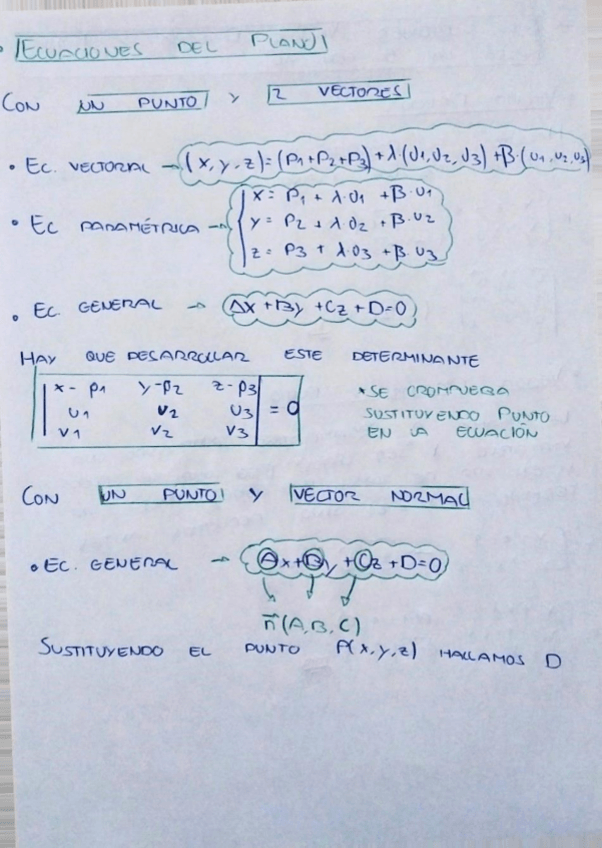 ECUACIONES DEL PLANO
CON UN PUNTO Y 2 VECTORES
• EC. VECTORIAL → (x, y, z) = (P1+P2+P3) + λ·(U1, U2, U3) + β·(U1, U2, U3)
• EC PARAMÉTRICA → { x = P1 + λ·U1 + β·U1
y = P2 + λ·U2 + β·U2
z = P3 + λ·U3 + β·U3
• EC. GENERAL → Ax + By + Cz + D = 0
HAY QUE DESARROLLAR ESTE DETERMINANTE
| x - P1 y - P2 z - P3 |
| U1 U2 U3 | = 0
| V1 V2 V3 |
* SE COMPRUEBA
SUSTITUYENDO PUNTO
EN LA ECUACIÓN
CON UN PUNTO Y VECTOR NORMAL
• EC. GENERAL → Ax + By + Cz + D = 0
n⃗(A, B, C)
SUSTITUYENDO EL PUNTO P(x, y, z) HALLAMOS D